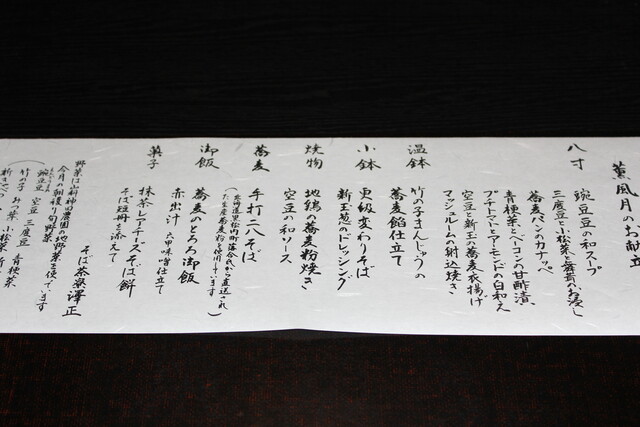 薫風月のお献立
八寸
豌豆豆の和スープ
三度豆と小松菜と舞茸のお浸し
蕎麦パンのカナッペ
青梗菜とベーコンの甘酢漬
プチトマトとアーモンドの白和え
空豆と新玉の蕎麦衣揚げ
マッシュルームの射込焼き
温鉢
竹の子まんじゅうの
蕎麦餡仕立て
小鉢
更級変わりそば
新玉葱のドレッシング
焼物
地鶏の蕎麦粉焼き
空豆の和ソース
蕎麦
手打二八そば
御飯
蕎麦のとろろ御飯
赤出汁 六甲味噌仕立て
菓子
抹茶レアチーズそば餅
そば短冊を添えて
そば茶寮澤正
野菜は山科神田農園の地野菜を使っています
今月の朝穫り旬野菜
豌豆豆 空豆 三度豆 青梗菜
竹の子
小松菜